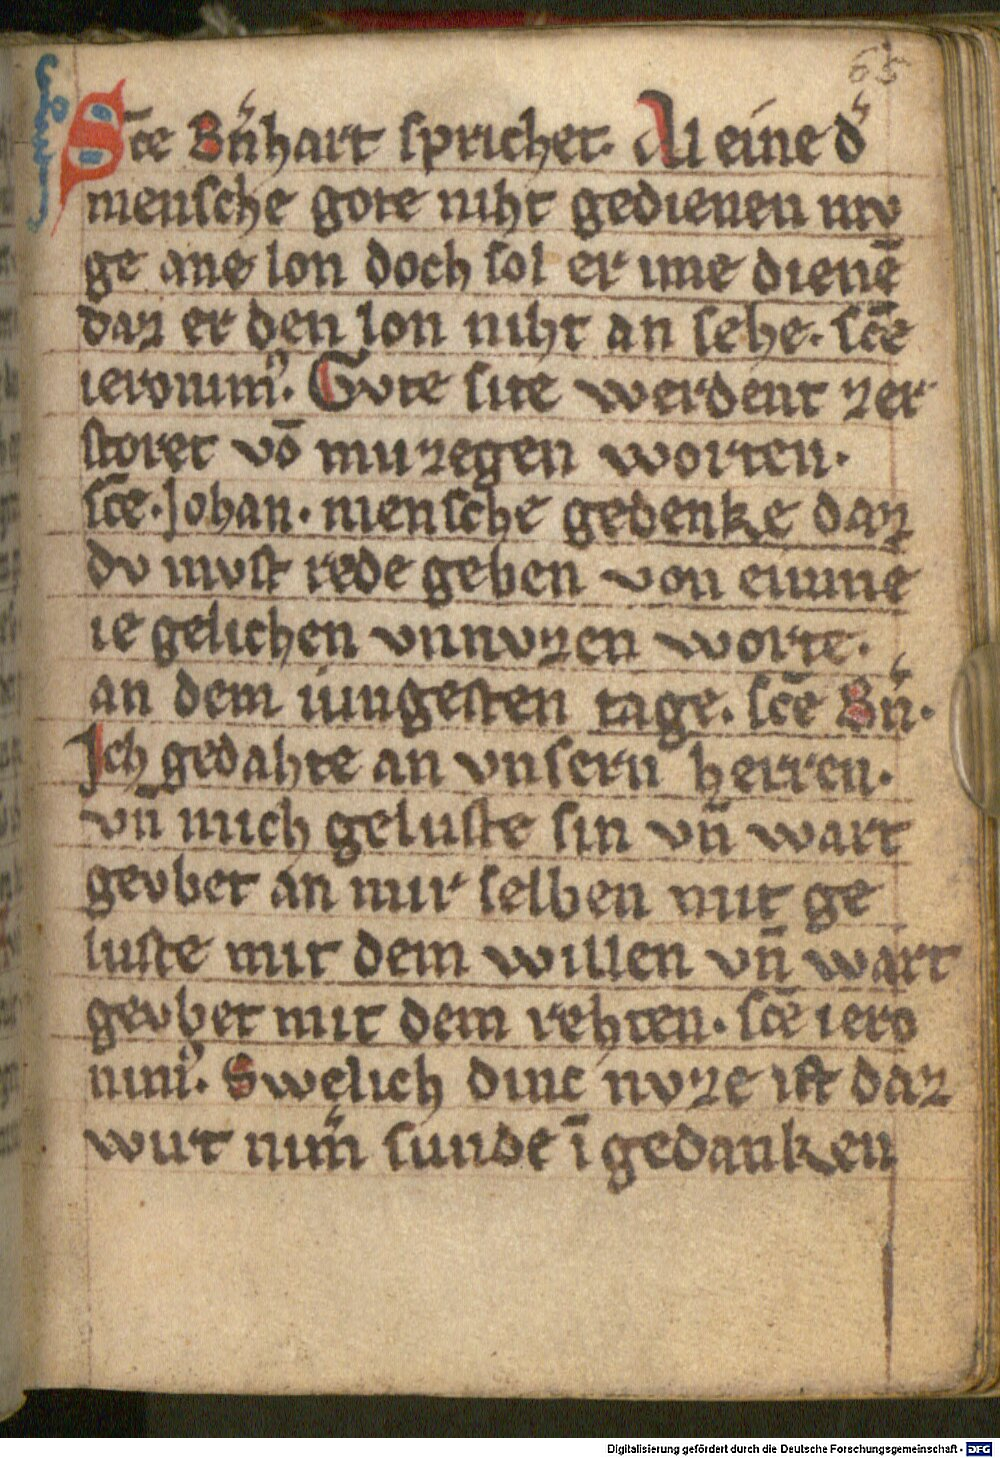 65
Sc̄e Bn̄hart sprichet. Al eine d'
mensche gote niht gedienen mv
ge ane lon doch sol er ime dienē
daz er den lon niht an sehe. sc̄e
ieronim'. Gvte site werdent zer
storet vō muzegen worten.
sc̄e. Johan. mensche gedenke daz
dv mvst rede geben von eimme
ie gelichen vnnvzen worte.
an dem iungesten tage. sc̄e Bn̄.
Ich gedahte an vnsern herren.
vn̄ mich geluste sin vn̄ wart
gevbet an mir selben mit ge
luste mit dem willen vn̄ wart
gevbet mit dem rehten. sc̄e iero
nim'. Swelich dinc nvze ist daz
wirt nim̄ sunde ī gedanken
Digitalisierung gefördert durch die Deutsche Forschungsgemeinschaft - DFG